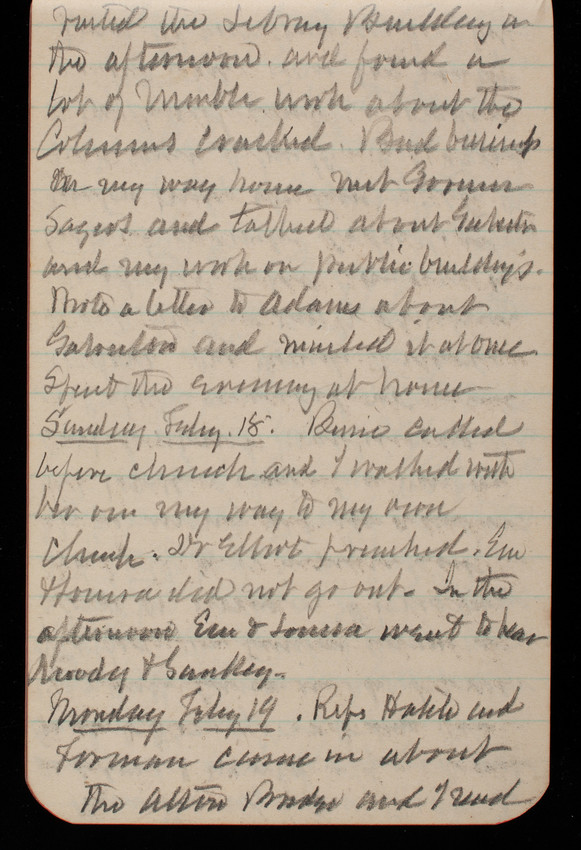 visited the Library Building in
the afternoon and found a
lot of marble work about the
Columns cracked. Bad business
On my way home met Gorman
Sagers and talked about Galveston
and my work on public buildings.
Wrote a letter to Adams about
Galveston and mailed it at once
Spent the evening at home
Sunday Feby. 18. Bessie called
before church and I walked with
her on my way to my own
Church. Dr Elliot preached. Em
& Louisa did not go out. In the
afternoon Em & Louisa went to hear
Moody & Sankey.
Monday Feby 19. Reps Hatch and
Forman came in about
the Alton Bridge and I read